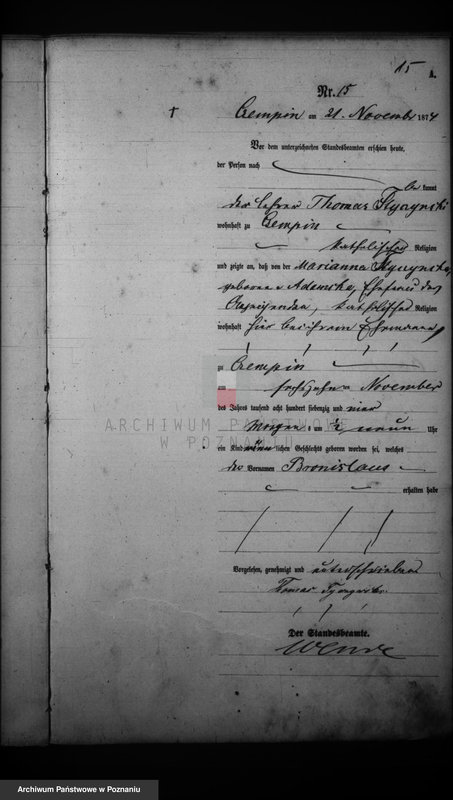 15
A.
Nr. 15
Czempin am 21. November 1874
Vor dem unterzeichneten Standesbeamten erschien heute,
der Person nach
be kannt
der Lehrer Thomas
wohnhaft zu Czempin
katholischer Religion
und zeigte an, daß von der Marianna
geborene Adamska, Ehefrau des
Anzeigenden, katholischer Religion
wohnhaft hier bei ihrem Ehemanne,
zu Czempin
am sechszehn November
des Jahres tausend acht hundert siebenzig und vier
Morgens um ½ neun Uhr
ein Kind männlichen Geschlechts geboren worden sei, welches
den Vornamen Bronislaus
erhalten habe
Vorgelesen, genehmigt und unterschrieben
Tomas
Der Standesbeamte.
ARCHIWUM PAŃSTWOWE
W POZNANIU
Archiwum Państwowe w Poznaniu